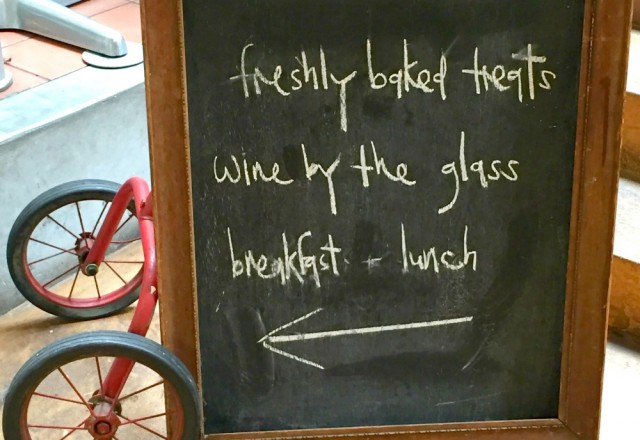 freshly baked treats
wine by the glass
breakfast + lunch